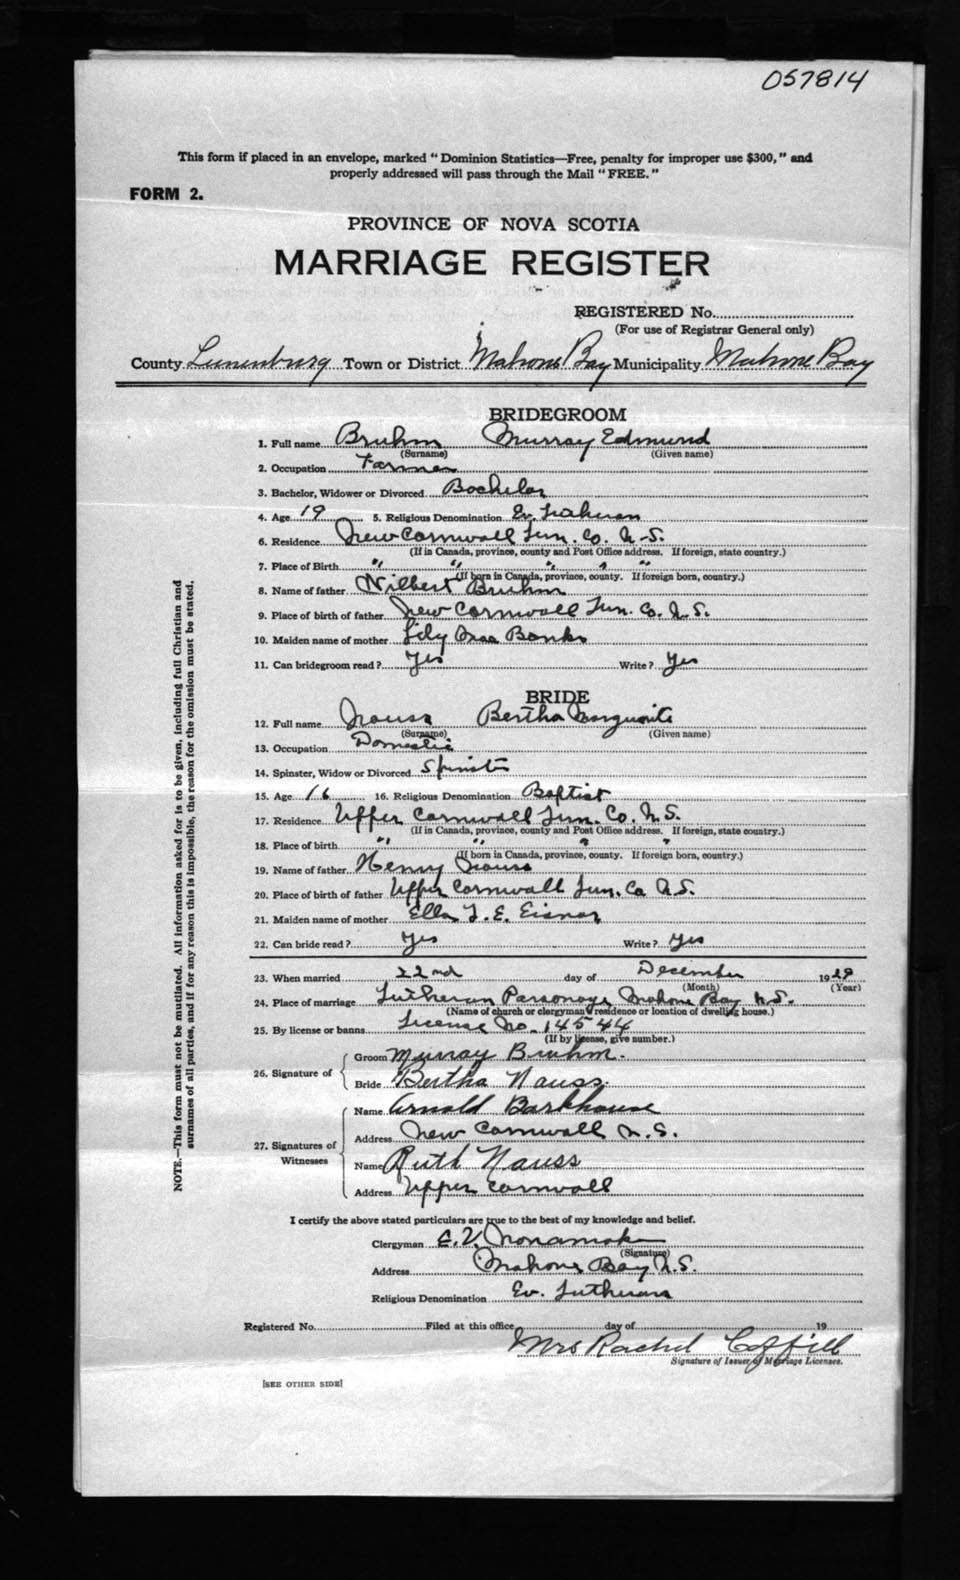 057814
This form if placed in an envelope, marked "Dominion Statistics—Free, penalty for improper use $300," and
properly addressed will pass through the Mail "FREE."
FORM 2.
PROVINCE OF NOVA SCOTIA
MARRIAGE REGISTER
REGISTERED No.
(For use of Registrar General only)
County Lunenburg Town or District Mahone Bay Municipality Mahone Bay
BRIDEGROOM
1. Full name Bruhm Murray Edmund
(Surname) (Given name)
2. Occupation Farmer
3. Bachelor, Widower or Divorced Bachelor
4. Age 19 5. Religious Denomination Ev. Lutheran
6. Residence New Cornwall Lun. Co. N.S.
(If in Canada, province, county and Post Office address. If foreign, state country.)
7. Place of Birth " " " " "
(If born in Canada, province, county. If foreign born, country.)
8. Name of father Wilbert Bruhm
9. Place of birth of father New Cornwall Lun. Co. N.S.
10. Maiden name of mother Lily Banks
11. Can bridegroom read? Yes Write? Yes
BRIDE
12. Full name Nauss Bertha Marguerite
(Surname) (Given name)
13. Occupation Domestic
14. Spinster, Widow or Divorced Spinster
15. Age 16 16. Religious Denomination Baptist
17. Residence Upper Cornwall Lun. Co. N.S.
(If in Canada, province, county and Post Office address. If foreign, state country.)
18. Place of birth " " " "
(If born in Canada, province, county. If foreign born, country.)
19. Name of father Henry Nauss
20. Place of birth of father Upper Cornwall Lun. Co N.S.
21. Maiden name of mother Ella L. E. Eisnor
22. Can bride read? Yes Write? Yes
23. When married 22nd day of December 19
(Month) (Year)
24. Place of marriage Lutheran Parsonage Mahone Bay N.S.
(Name of church or clergyman's residence or location of dwelling house.)
25. By license or banns License No. 14544
(If by license, give number.)
26. Signature of
Groom Murray Bruhm.
Bride Bertha Nauss.
27. Signatures of Witnesses
Name Arnold Barkhouse
Address New Cornwall N.S.
Name Ruth Nauss
Address Upper Cornwall
I certify the above stated particulars are true to the best of my knowledge and belief.
Clergyman E.V. Nonamaker
(Signature)
Address Mahone Bay N.S.
Religious Denomination Ev. Lutheran
Registered No. Filed at this office day of 19
Mrs Rachel Coffill
Signature of Issuer of Marriage Licenses.
[SEE OTHER SIDE]
NOTE.—This form must not be mutilated. All information asked for is to be given, including full Christian and
surnames of all parties, and if for any reason this is impossible, the reason for the omission must be stated.